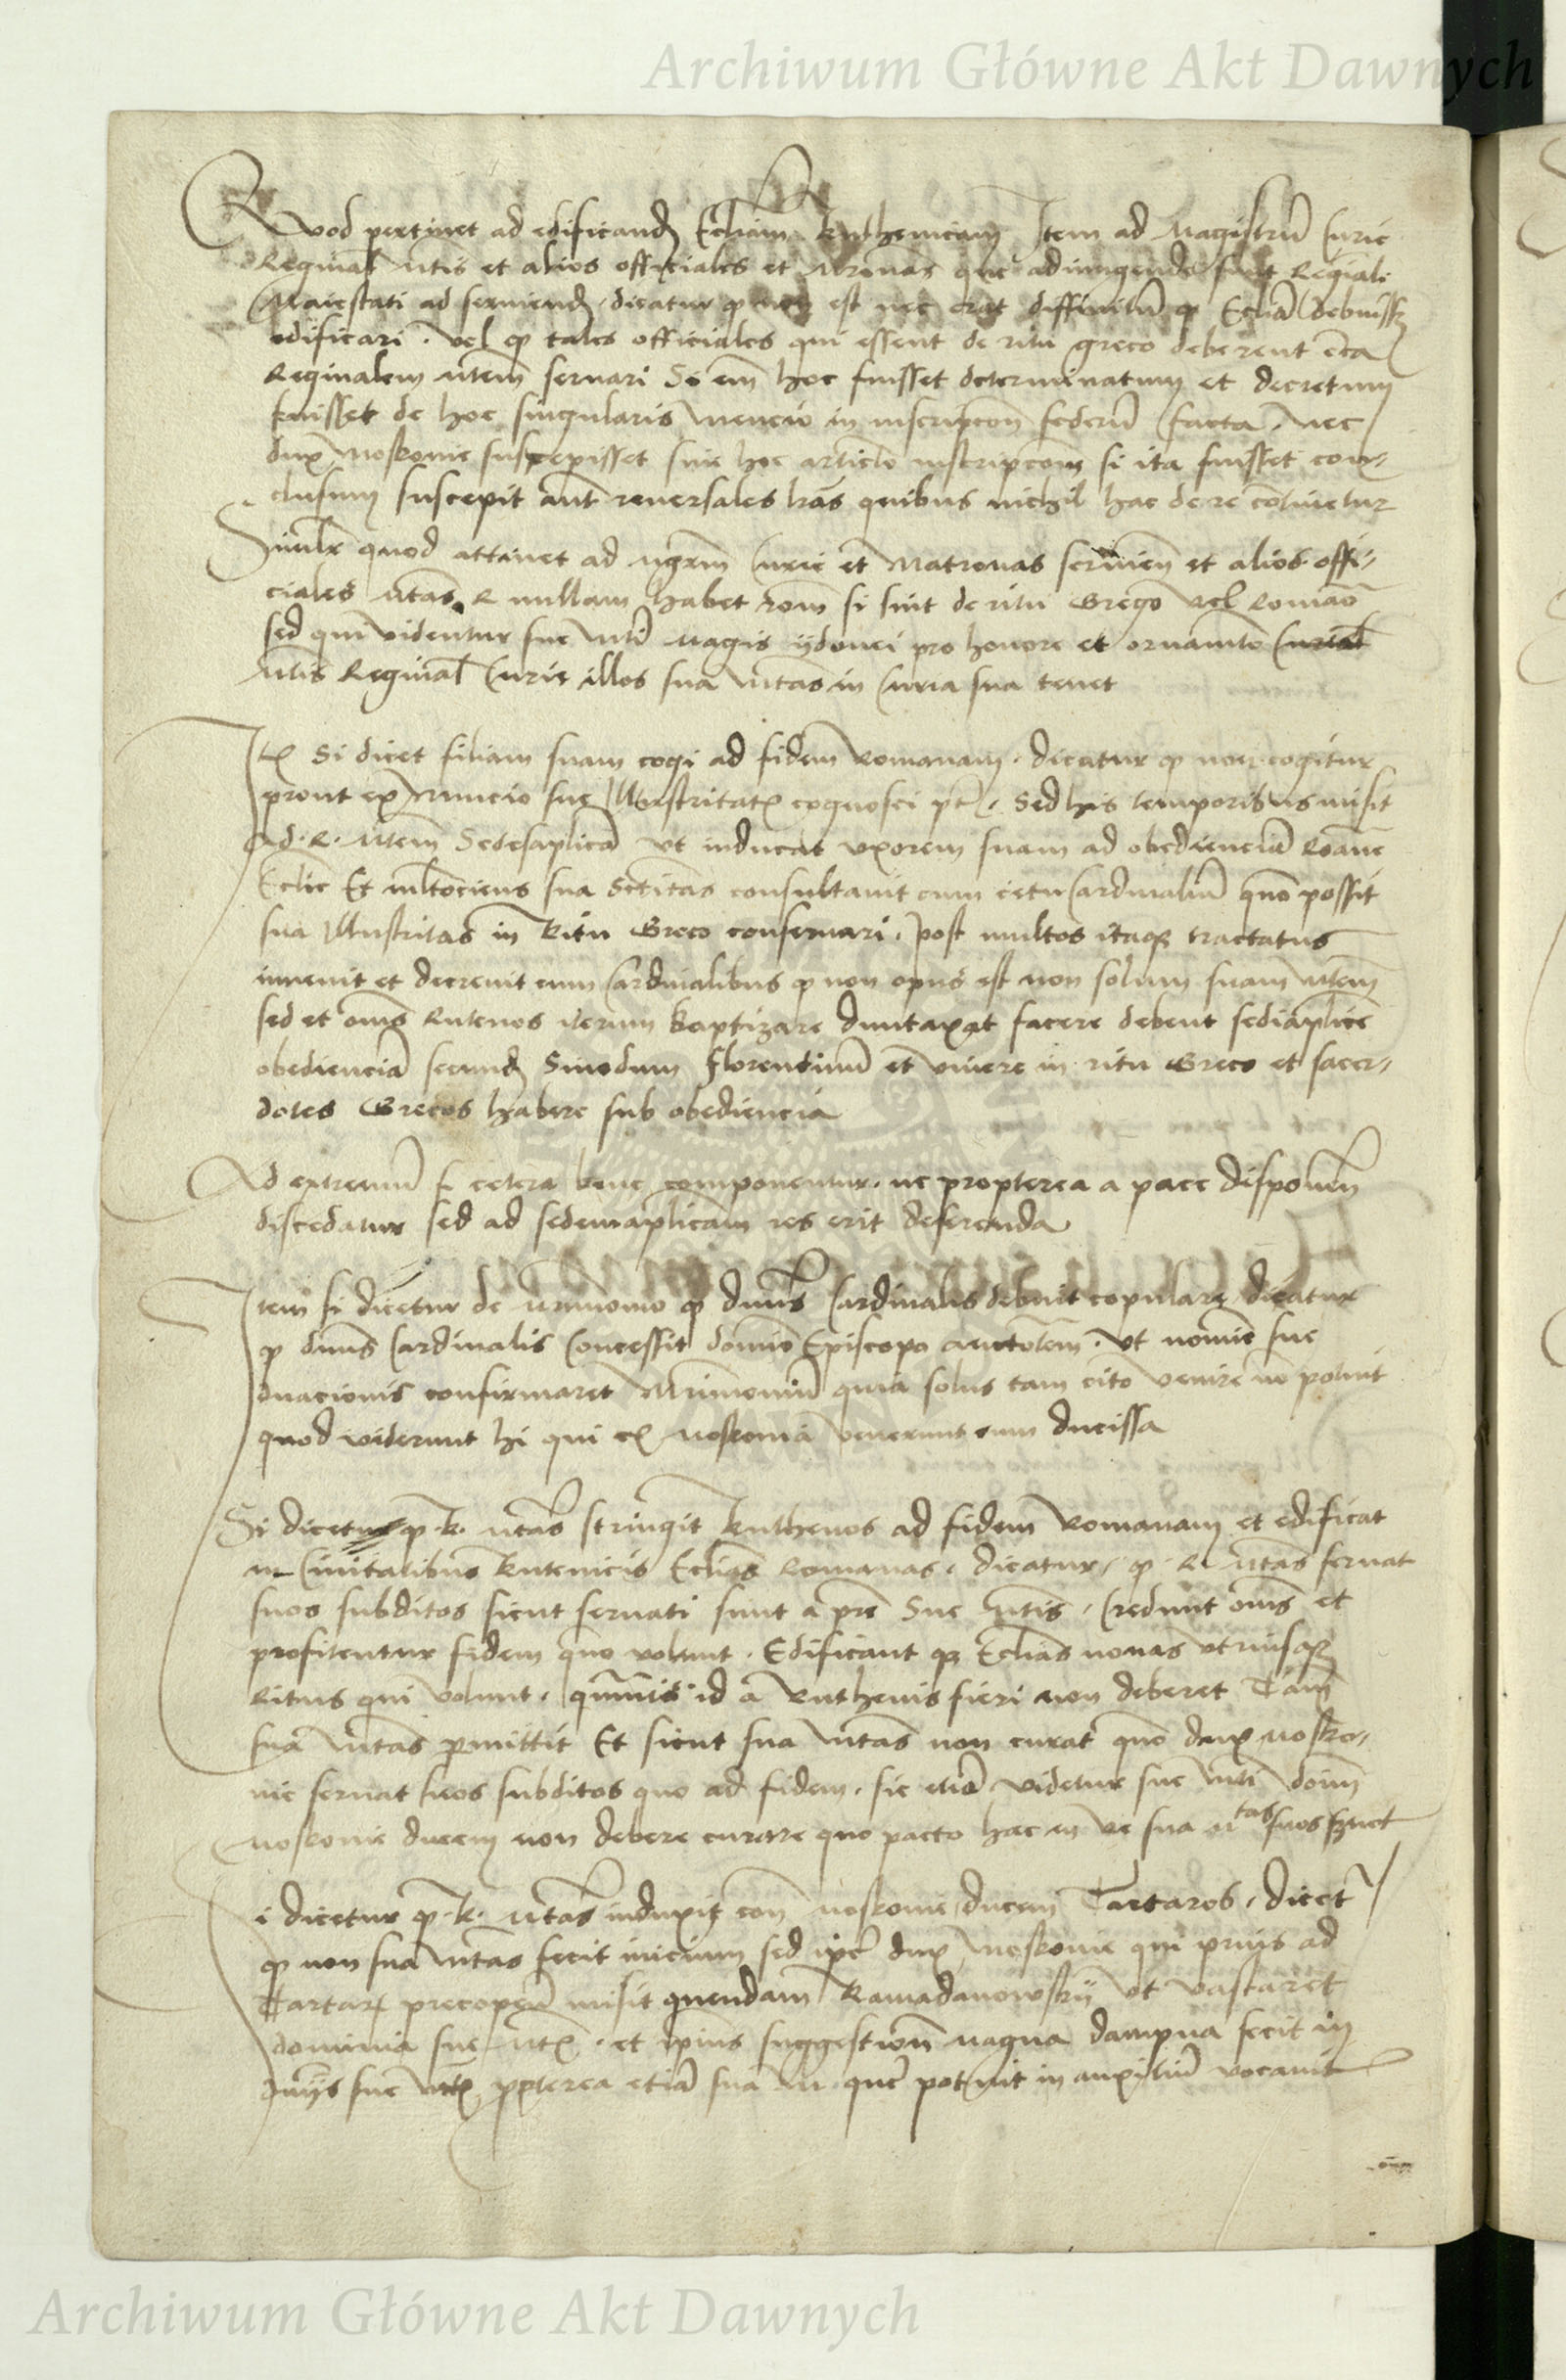 Archiwum Główne Akt Dawnych
Quod pertinet ad edificand Eccliam Ruthenicam Item ad Magistrũ Curie
Reginal Mtis et alios officiales et Mronas que adiungende sunt Reginali
Maiestati ad seruiend, dicatur ꝙ non est nec erat diffinitũ ꝙ Eccliã debuissz
edificari. vel ꝙ tales officiales qui essent de ritu greco deberent circa
Reginalem Mtem seruari Si em hoc fuisset determinatum et decretum
fuisset de hoc singularis mencio in inscripcon federũ facta, nec
dux Moskouie suscepisset sine hoc articlo inscripcom si ita fuisset con-
clusum suscepit aut reuersales lras quibus nichil hac de re continetur
Similr quod attinet ad Mgrm Curie et Matronas seruien et alios offi-
ciales Mtas R nullam habet rom si sint de ritu Greco vel Romano
sed qui videntur sue Mti magis ydonei pro honore et ornamto
Mtis Reginal Curie illos sua Mtas in Curia sua tenet
Itm Si dicet filiam suam cogi ad fidem Romanam. dicatur ꝙ non cogitur
prout ex nuncio sue Illustritatis cognosci pt. Sed his temporibus misit
ad. R. Mtem Sedesaplica vt inducat vxorem suam ad obedienciã Roane
Ecclie Et multociens sua Sctitas consultauit cum cetu Cardinaliũ quo possit
sua Illustritas in Ritu Greco conseruari. post multos itaqz tractatus
inuenit et decreuit cum Cardinalibus ꝙ non opus est non solum suam Mtem
sed et oms Rutenos iterum baptizare duntaxat facere debent sediaplice
obedienciã secund Sinodum florentinũ et viuere in ritu Greco et sacer-
dotes Grecos habere sub obediencia
Ad extremũ si cetera bene componentur. ne propterea a pace disponen
discedatur sed ad sedemaplicam res erit deferenda
Item si dicetur de Mrimonio ꝙ dnus Cardinalis debuit copulare dicatur
ꝙ dnus Cardinalis Concessit domino Episcopo auctotem. vt nomine sue
confirmaret Mrimoniũ quia solus tam cito venire no potuit
quod viderunt hi qui ex Moskouia venerunt cum ducissa
Si dicetur ꝙ. R. Mtas stringit Ruthenos ad fidem Romanam et edificat
in Ciuitatibus Rutenicis Ecclias Romanas. dicatur. ꝙ R Mtas seruat
suos subditos sicut seruati sunt a pre Sue Mtis. Credunt oms et
profitentur fidem quo volunt. Edificant qz Ecclias nouas vtriusqz
Ritus qui volunt. quamuis id a Ruthenis fieri non deberet Tam
sua Mtas pmittit Et sicut sua Mtas non curat quo dux Mosko-
uie seruat suos subditos quo ad fidem. sic etiã videtur sue Mti dom
Moskouie ducem non debere curare quo pacto hac in re sua Mtas suos seruet
i dicetur ꝙ. R. Mtas induxit con Moskouie ducem Tartaros. dicet
ꝙ non sua Mtas fecit inicium sed ipse dux Moskouie qui prius ad
Tartar precopen misit quendam Ramadanowsky vt vastaret
dominia sue Mtis. et ipius suggestion magna dampna fecit in
dnijs sue Mtis ppterea etiã sua M. que potuit in auxiliũ vocauit
Archiwum Główne Akt Dawnych